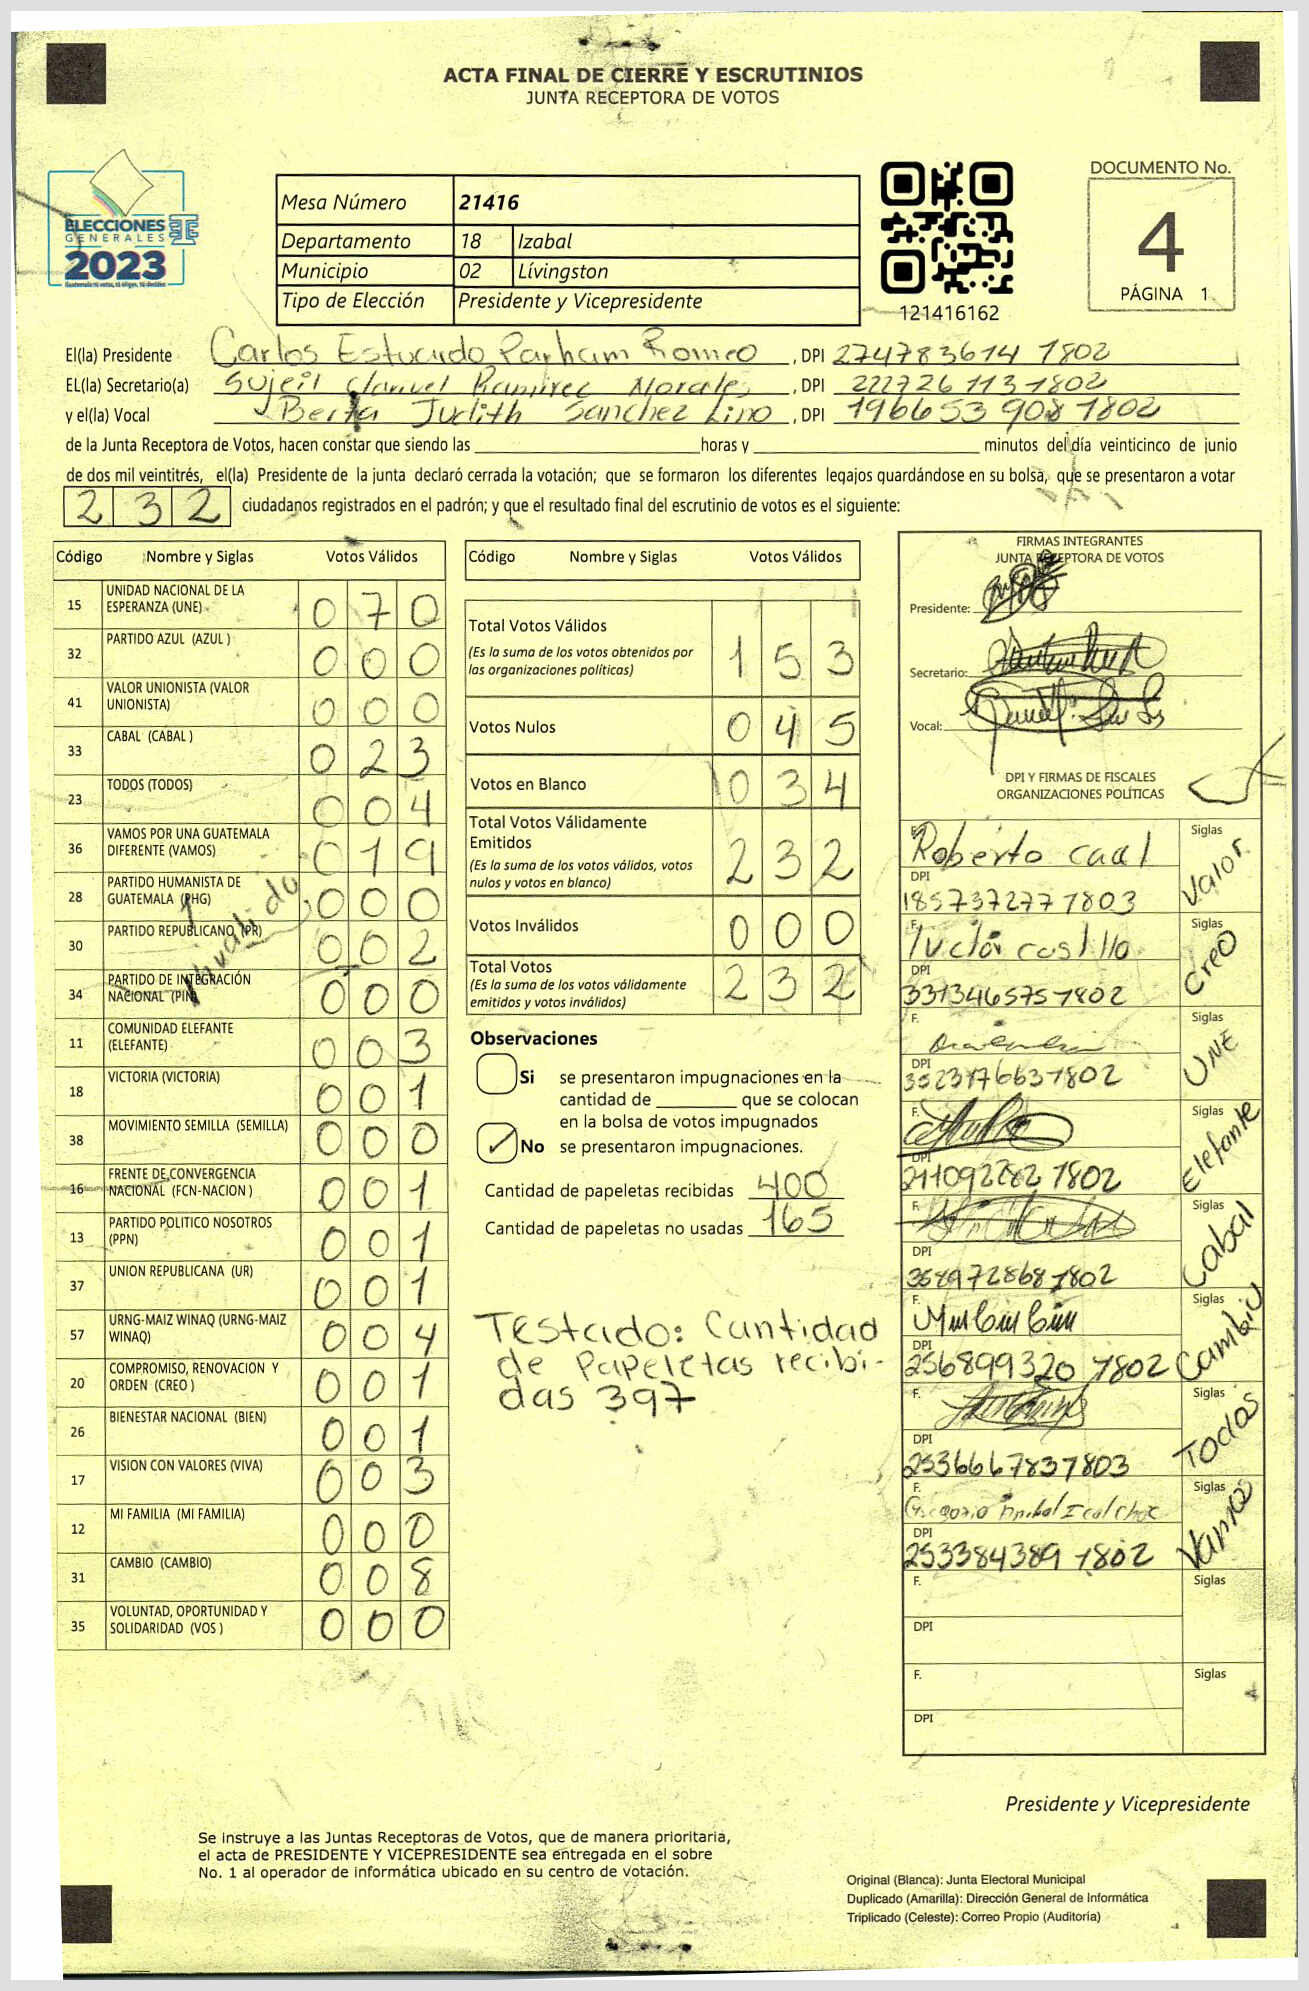 ACTA FINAL DE CIERRE Y ESCRUTINIOS
JUNTA RECEPTORA DE VOTOS
ELECCIONES
GENERALES
2023
Mesa Número 21416
Departamento 18 Izabal
Municipio 02 Lívingston
Tipo de Elección Presidente y Vicepresidente
121416162
DOCUMENTO No.
4
PÁGINA 1
El(la) Presidente Carlos Estuardo Parham Romeo, DPI 274783614 1802
EL(la) Secretario(a) Sujeil Ramirez Morales, DPI 222726113 1802
y el(la) Vocal Berta Judith Sanchez Lino, DPI 196653908 1802
de la Junta Receptora de Votos, hacen constar que siendo las horas y minutos del día veinticinco de junio
de dos mil veintitrés, el(la) Presidente de la junta declaró cerrada la votación; que se formaron los diferentes legajos guardándose en su bolsa, que se presentaron a votar
232 ciudadanos registrados en el padrón; y que el resultado final del escrutinio de votos es el siguiente:
Código Nombre y Siglas Votos Válidos
15 UNIDAD NACIONAL DE LA ESPERANZA (UNE) 070
32 PARTIDO AZUL (AZUL ) 000
41 VALOR UNIONISTA (VALOR UNIONISTA) 000
33 CABAL (CABAL ) 023
23 TODOS (TODOS) 004
36 VAMOS POR UNA GUATEMALA DIFERENTE (VAMOS) 019
28 PARTIDO HUMANISTA DE GUATEMALA (PHG) 000
30 PARTIDO REPUBLICANO (PR) 002
34 PARTIDO DE INTEGRACIÓN NACIONAL (PIN) 000
Invalido
11 COMUNIDAD ELEFANTE (ELEFANTE) 003
18 VICTORIA (VICTORIA) 001
38 MOVIMIENTO SEMILLA (SEMILLA) 000
16 FRENTE DE CONVERGENCIA NACIONAL (FCN-NACION ) 001
13 PARTIDO POLITICO NOSOTROS (PPN) 001
37 UNION REPUBLICANA (UR) 001
57 URNG-MAIZ WINAQ (URNG-MAIZ WINAQ) 004
20 COMPROMISO, RENOVACION Y ORDEN (CREO ) 001
26 BIENESTAR NACIONAL (BIEN) 001
17 VISION CON VALORES (VIVA) 003
12 MI FAMILIA (MI FAMILIA) 000
31 CAMBIO (CAMBIO) 008
35 VOLUNTAD, OPORTUNIDAD Y SOLIDARIDAD (VOS ) 000
Código Nombre y Siglas Votos Válidos
Total Votos Válidos 153
(Es la suma de los votos obtenidos por
las organizaciones políticas)
Votos Nulos 045
Votos en Blanco 034
Total Votos Válidamente
Emitidos 232
(Es la suma de los votos válidos, votos
nulos y votos en blanco)
Votos Inválidos 000
Total Votos 232
(Es la suma de los votos válidamente
emitidos y votos inválidos)
Observaciones
Si se presentaron impugnaciones en la
cantidad de que se colocan
en la bolsa de votos impugnados
No se presentaron impugnaciones.
Cantidad de papeletas recibidas 400
Cantidad de papeletas no usadas 165
Testado: Cantidad
de Papeletas recibi-
das 397
FIRMAS INTEGRANTES
JUNTA RECEPTORA DE VOTOS
Presidente:
Secretario:
Vocal:
DPI Y FIRMAS DE FISCALES
ORGANIZACIONES POLÍTICAS
F. Roberto Caal Siglas Valor
DPI 185737277 1803
F. castillo Siglas Creo
DPI 331346575 1802
F. Siglas UNE
DPI 1802
F. Siglas Elefante
DPI 1802
F. Siglas Cabal
DPI 358972868 1802
F. Siglas Cambio
DPI 256899320 1802
F. Siglas Todos
DPI 253666783 1803
F. Gregorio Anibal Ical Choc Siglas Vamos
DPI 253384389 1802
F. Siglas
DPI
F. Siglas
DPI
Presidente y Vicepresidente
Se instruye a las Juntas Receptoras de Votos, que de manera prioritaria,
el acta de PRESIDENTE Y VICEPRESIDENTE sea entregada en el sobre
No. 1 al operador de informática ubicado en su centro de votación.
Original (Blanca): Junta Electoral Municipal
Duplicado (Amarilla): Dirección General de Informática
Triplicado (Celeste): Correo Propio (Auditoría)